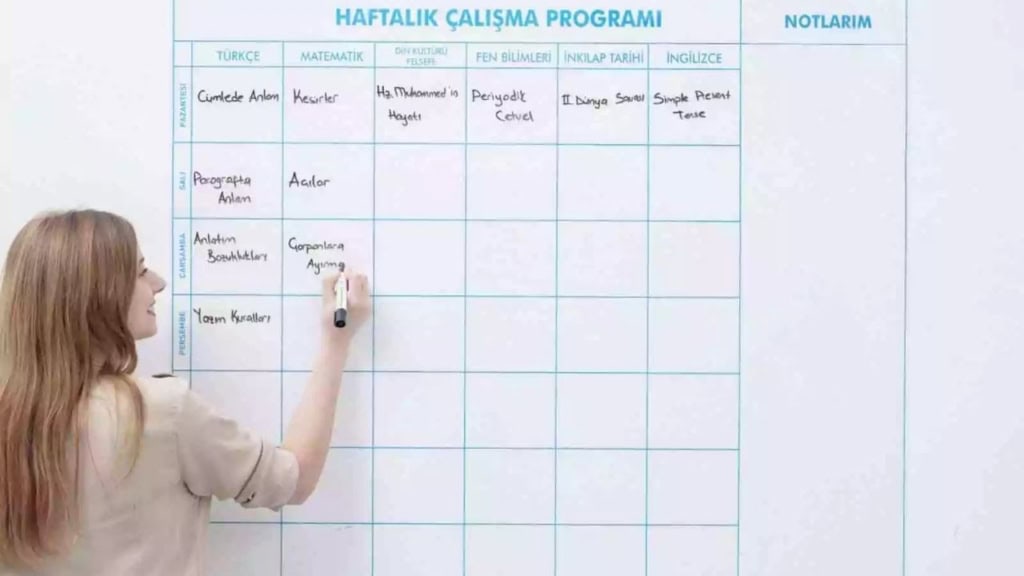 HAFTALIK ÇALIŞMA PROGRAMI
NOTLARIM
TÜRKÇE
MATEMATİK
DİN KÜLTÜRÜ
FELSEFE
FEN BİLİMLERİ
İNKILAP TARİHİ
İNGİLİZCE
PAZARTESİ
Cümlede Anlam
Kesirler
Hz. Muhammed'in
Hayatı
Periyodik
Cetvel
II. Dünya Savaşı
Simple Present
Tense
SALI
Paragrafta
Anlam
Açılar
ÇARŞAMBA
Anlatım
Bozuklukları
Çarpanlara
Ayırma
PERŞEMBE
Yazım Kuralları